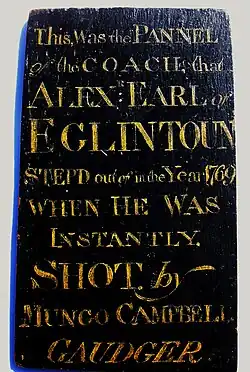 This, Was the PANNEL
of the COACH, that
ALEX: EARL of
EGLINTOUN
STEP'D out of in the Year 1769
WHEN HE WAS
INSTANTLY.
SHOT. by
MUNGO CAMPBELL
GAUDGER